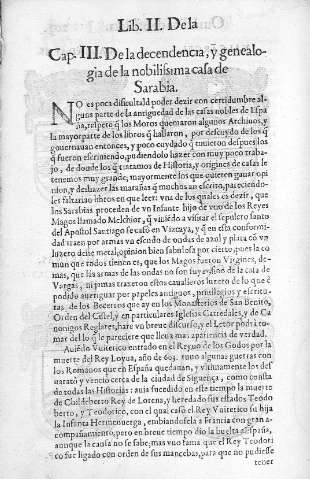 Lib. II. De la
Cap. III. De la decendencia, y genealo-
gia de la nobilissima casa de
Sarabia.
NO es poca dificultad poder dezir con certidumbre al-
guna parte de la antiguedad de las casas nobles de Espa
ña, respeto q̃ los Moros quemaron algunos Archiuos, y
la mayor parte de los libros q̃ hallaron, por descuydo de los q̃
gouernauan entonces, y poco cuydado q̃ tuuieron despues los
q̃ fueron escriuiendo, pudiendolo hazer con muy poco traba-
jo, de donde los q̃ tratamos de Historia, y origenes de casas le
tenemos muy grande, mayormente los que quieren
nion, y deshazer las marañas q̃ muchos an escrito, pareciendo-
les faltarian libros en que leer: vna de los quales es dezir, que
los Sarabias proceden de vn Infante hijo de vno de los Reyes
Magos llamado Melchior, q̃ viniendo a visitar el sepulcro santo
del Apostol Santiago se casó en Vizcaya, y q̃ en esta conformi-
dad traen por armas vn escudo de ondas de azul y plata cõ vn
luzero deste metal, opinion bien fabulosa por cierto, pues la co
mun que todos tienen es, que los Magos fueron Virgines, de-
mas, que las armas de las ondas no son suyas sino de la casa de
Vargas, ni jamas traxeron estos caualleros luzero de lo que è
podido aueriguar por papeles antiguos, priuilegios y escritu-
ras, de los Becerros que ay en los Monasterios de San Benito,
Orden del Cistel, y en particulares Iglesias Catedrales, y de Ca
nonigos Reglares, harè vn breue discurso, y el Letor podrà to-
mar del lo q̃ le pareciere que lleua mas apariencia de verdad.
Auiẽdo Vuiterico entrado en el Reyno de los Godos por la
muerte del Rey Loyua, año de 603. tuuo algunas guerras con
los Romanos que en España quedauan, y vltimamente los des
varatò y venciò cerca de la ciudad de Siguença, como consta
de todas las Historias: auia sucedido en este tiempo la muerte
de Childeberto Rey de Lorena, y heredado sus estados Teodo
berto, y Teodorico, con el qual casò el Rey Vuiterico su hija
la Infanta Hermenuerga, embiandosela a Francia con gran a-
compañamiento, pero en breue tiempo dio la buelta a España,
aunque la causa no se sabe, mas vno fama que el Rey Teodori
co fue ligado con orden de sus mancebas, para que no pudiesse
tener